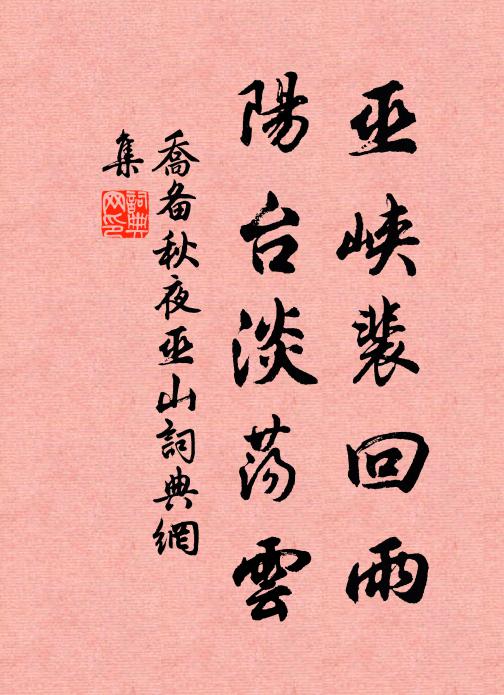 巫峽裴回雨
陽台淡荡雲
喬备秋夜巫山詞典網
集
詞典
网印